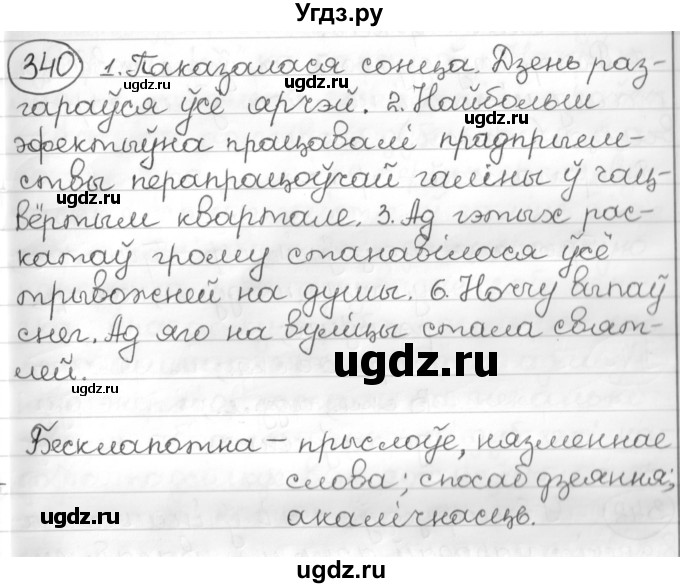 Угдз.ру
340 1. Паказалася сонца. Дзень раз-
гараўся ўсё ярчэй. 2. Найбольш
эфектыўна працавалі прадпрыем-
ствы перапрацоўчай галіны ў чац-
вёртым квартале. 3. Ад гэтых рас-
катаў грому станавілася ўсё
трывожней на душы. 6. Ноччу выпаў
снег. Ад яго на вуліцы стала святл-
лей.
Бесклапотна – прыслоўе, нязменнае
слова; спосаб дзеяння;
акалічнасць.
ugdz.ru
ugdz.ru
ugdz.ru
ugdz.ru
ugdz.ru
ugdz.ru
ugdz.ru
ugdz.ru
ugdz.ru
ugdz.ru